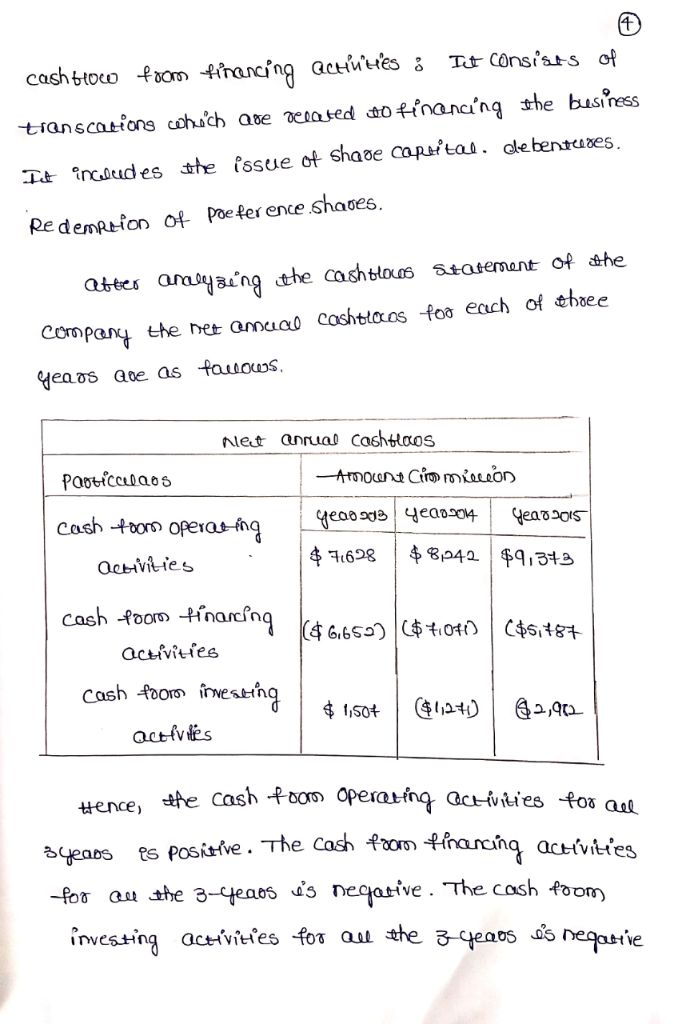 4
cashflow from financing activities : It Consists of
transcations which are related to financing the business
It includes the issue of share capital. debentures.
Redemption of Preference shares.
after analyzing the cashflows statement of the
company the net annual cashflows for each of three
years are as follows.
Net annual cashflows
Particulars
Amount (in million)
year 2013 year 2014 year 2015
cash from operating
activities
$ 7,628 $ 8,242 $9,373
cash from financing
activities
($ 6,652) ($ 7,071) ($5,787
cash from investing
activites
$ 1,507 ($1,271) ($2,982
Hence, the cash from operating activities for all
3 years is positive. The cash from financing activities
for all the 3-years is negative. The cash from
investing activities for all the 3-years is negative